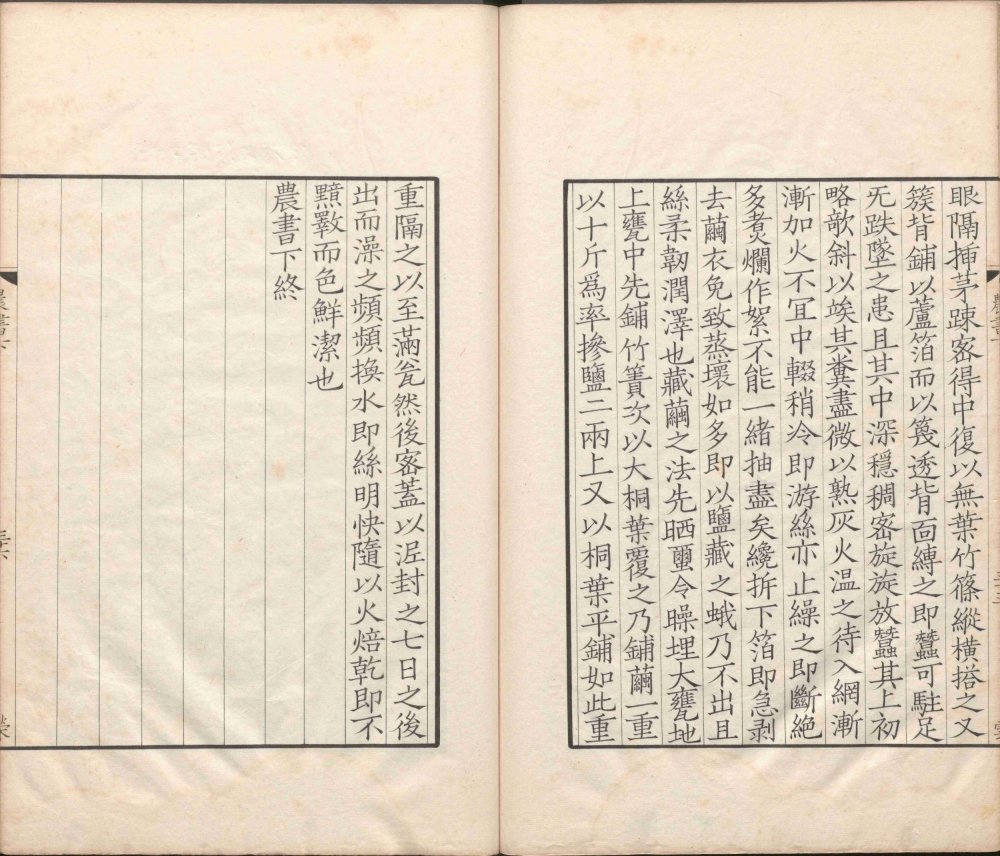 眼隔揷茅踈宻得中復以無葉竹篠縱橫搭之又
簇背鋪以蘆箔而以篾透背靣縛之即蠶可駐足
无跌墜之患且其中深穩稠宻旋旋放蠶其上初
略欹斜以竢其糞盡微以熟灰火温之待入網漸
漸加火不冝中輟稍冷即游絲亦止繰之即斷絶
多煑爛作絮不能一緒抽盡矣纔拆下箔即急剥
去繭衣免致蒸壞如多即以鹽藏之蛾乃不出且
絲柔韌潤澤也藏繭之法先晒令燥埋大甕地
上甕中先鋪竹簀次以大桐葉覆之乃鋪繭一重
以十斤爲率摻鹽二兩上又以桐葉平鋪如此重
重隔之以至滿瓮然後宻蓋以泥封之七日之後
出而澡之頻頻換水即絲明快隨以火焙乾即不
黯斁而色鮮潔也
農書下終
農書下